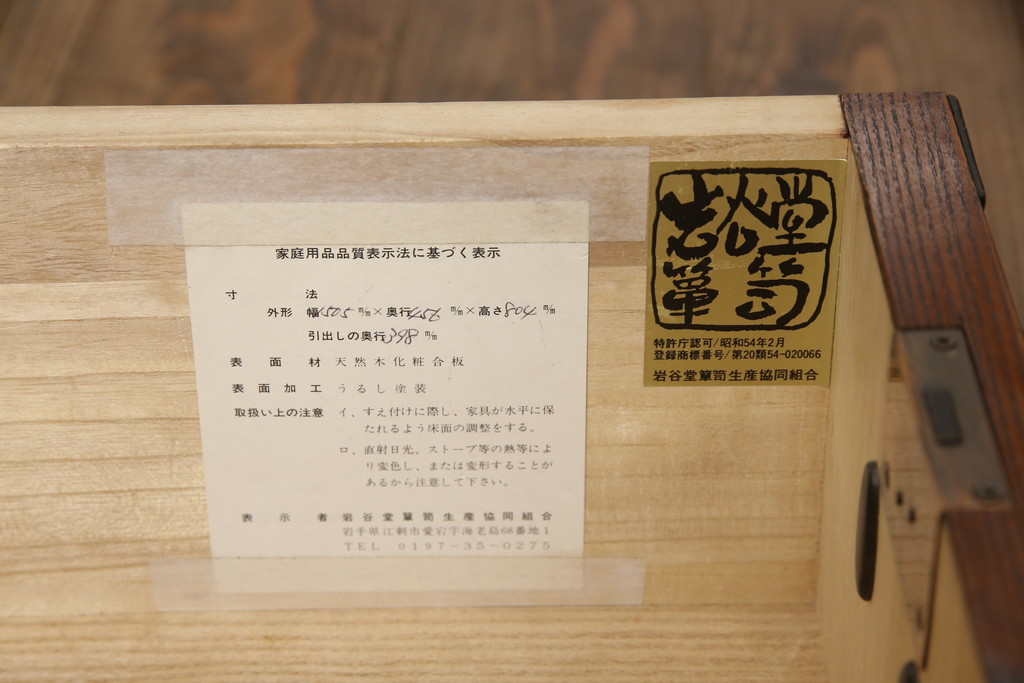 家庭用品品質表示法に基づく表示
寸法
外形 幅1505 m/m×奥行456 m/m×高さ804 m/m
引出しの奥行398 m/m
表面材 天然木化粧合板
表面加工 うるし塗装
取扱い上の注意 イ、すえ付けに際し、家具が水平に保
たれるよう床面の調整をする。
ロ、直射日光、ストーブ等の熱等によ
り変色し、または変形することが
あるから注意して下さい。
表示者 岩谷堂簞笥生産協同組合
岩手県江刺市愛宕字海老島68番地1
TEL 0197-35-0275
岩谷堂
簞笥
特許庁認可/昭和54年2月
登録商標番号/第20類54-020066
岩谷堂簞笥生産協同組合